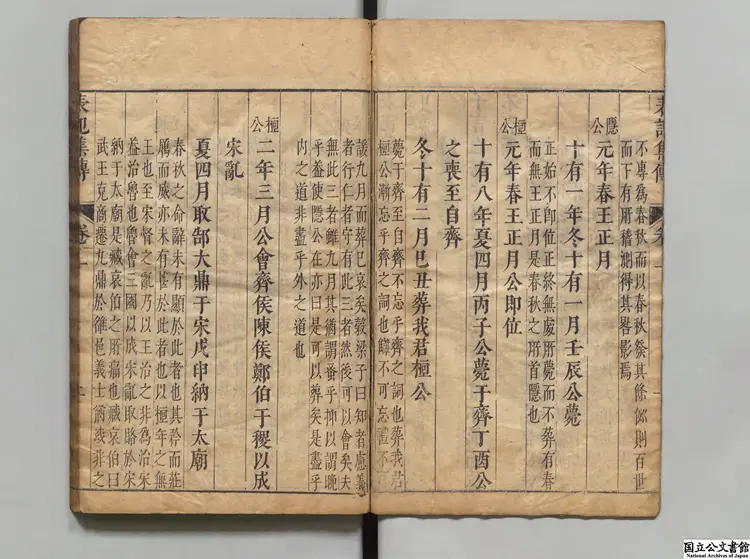 表記集傳
不專為春秋而以春秋發其餘微則百世
而下有所稽測得其畧影焉
隱公
元年春王正月
十有一年冬十有一月壬辰公薨
正始不即位正終無處所薨而不葬有春
而無王正月是春秋之所首隱也
桓公
元年春王正月公即位
十有八年夏四月丙子公薨于齊丁酉公
之喪至自齊
冬十有二月己丑葬我君桓公
薨于齊至自齊不忘乎齊之詞也葬我君
桓公漸忘乎齊之詞也讎不可忘禮不
議九月而葬已哀矣穀梁子曰知者慮義
者行仁者守有此三者然後可以會矣夫
無此三者雖九月其猶謂蚤乎抑以謂晚
乎葢使隱公在亦曰是可以葬矣是盡乎
內之道非盡乎外之道也
桓公
二年三月公會齊侯陳侯鄭伯于稷以成
宋亂
夏四月取郜大鼎于宋戊申納于太廟
春秋之命辭未有顯於此者也其矜而莊
厲而威亦未有甚於此者也以桓年之無
王也至宋督之亂乃以王治之非為治宋
益治魯也魯會三國以成宋亂取賂於宋
納于太廟是臧哀伯之所痛也臧哀伯曰
武王克商遷九鼎於雒邑義士猶或非之
表記集傳
卷
國立公文書館
National Archives of Japan